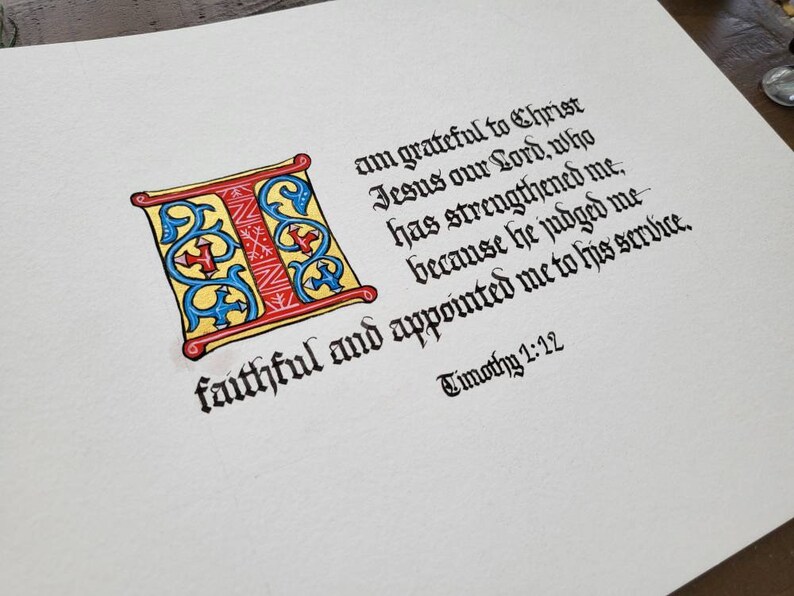 I am grateful to Christ
Jesus our Lord, who
has strengthened me,
because he judged me
faithful and appointed me to his service.
Timothy 1:12